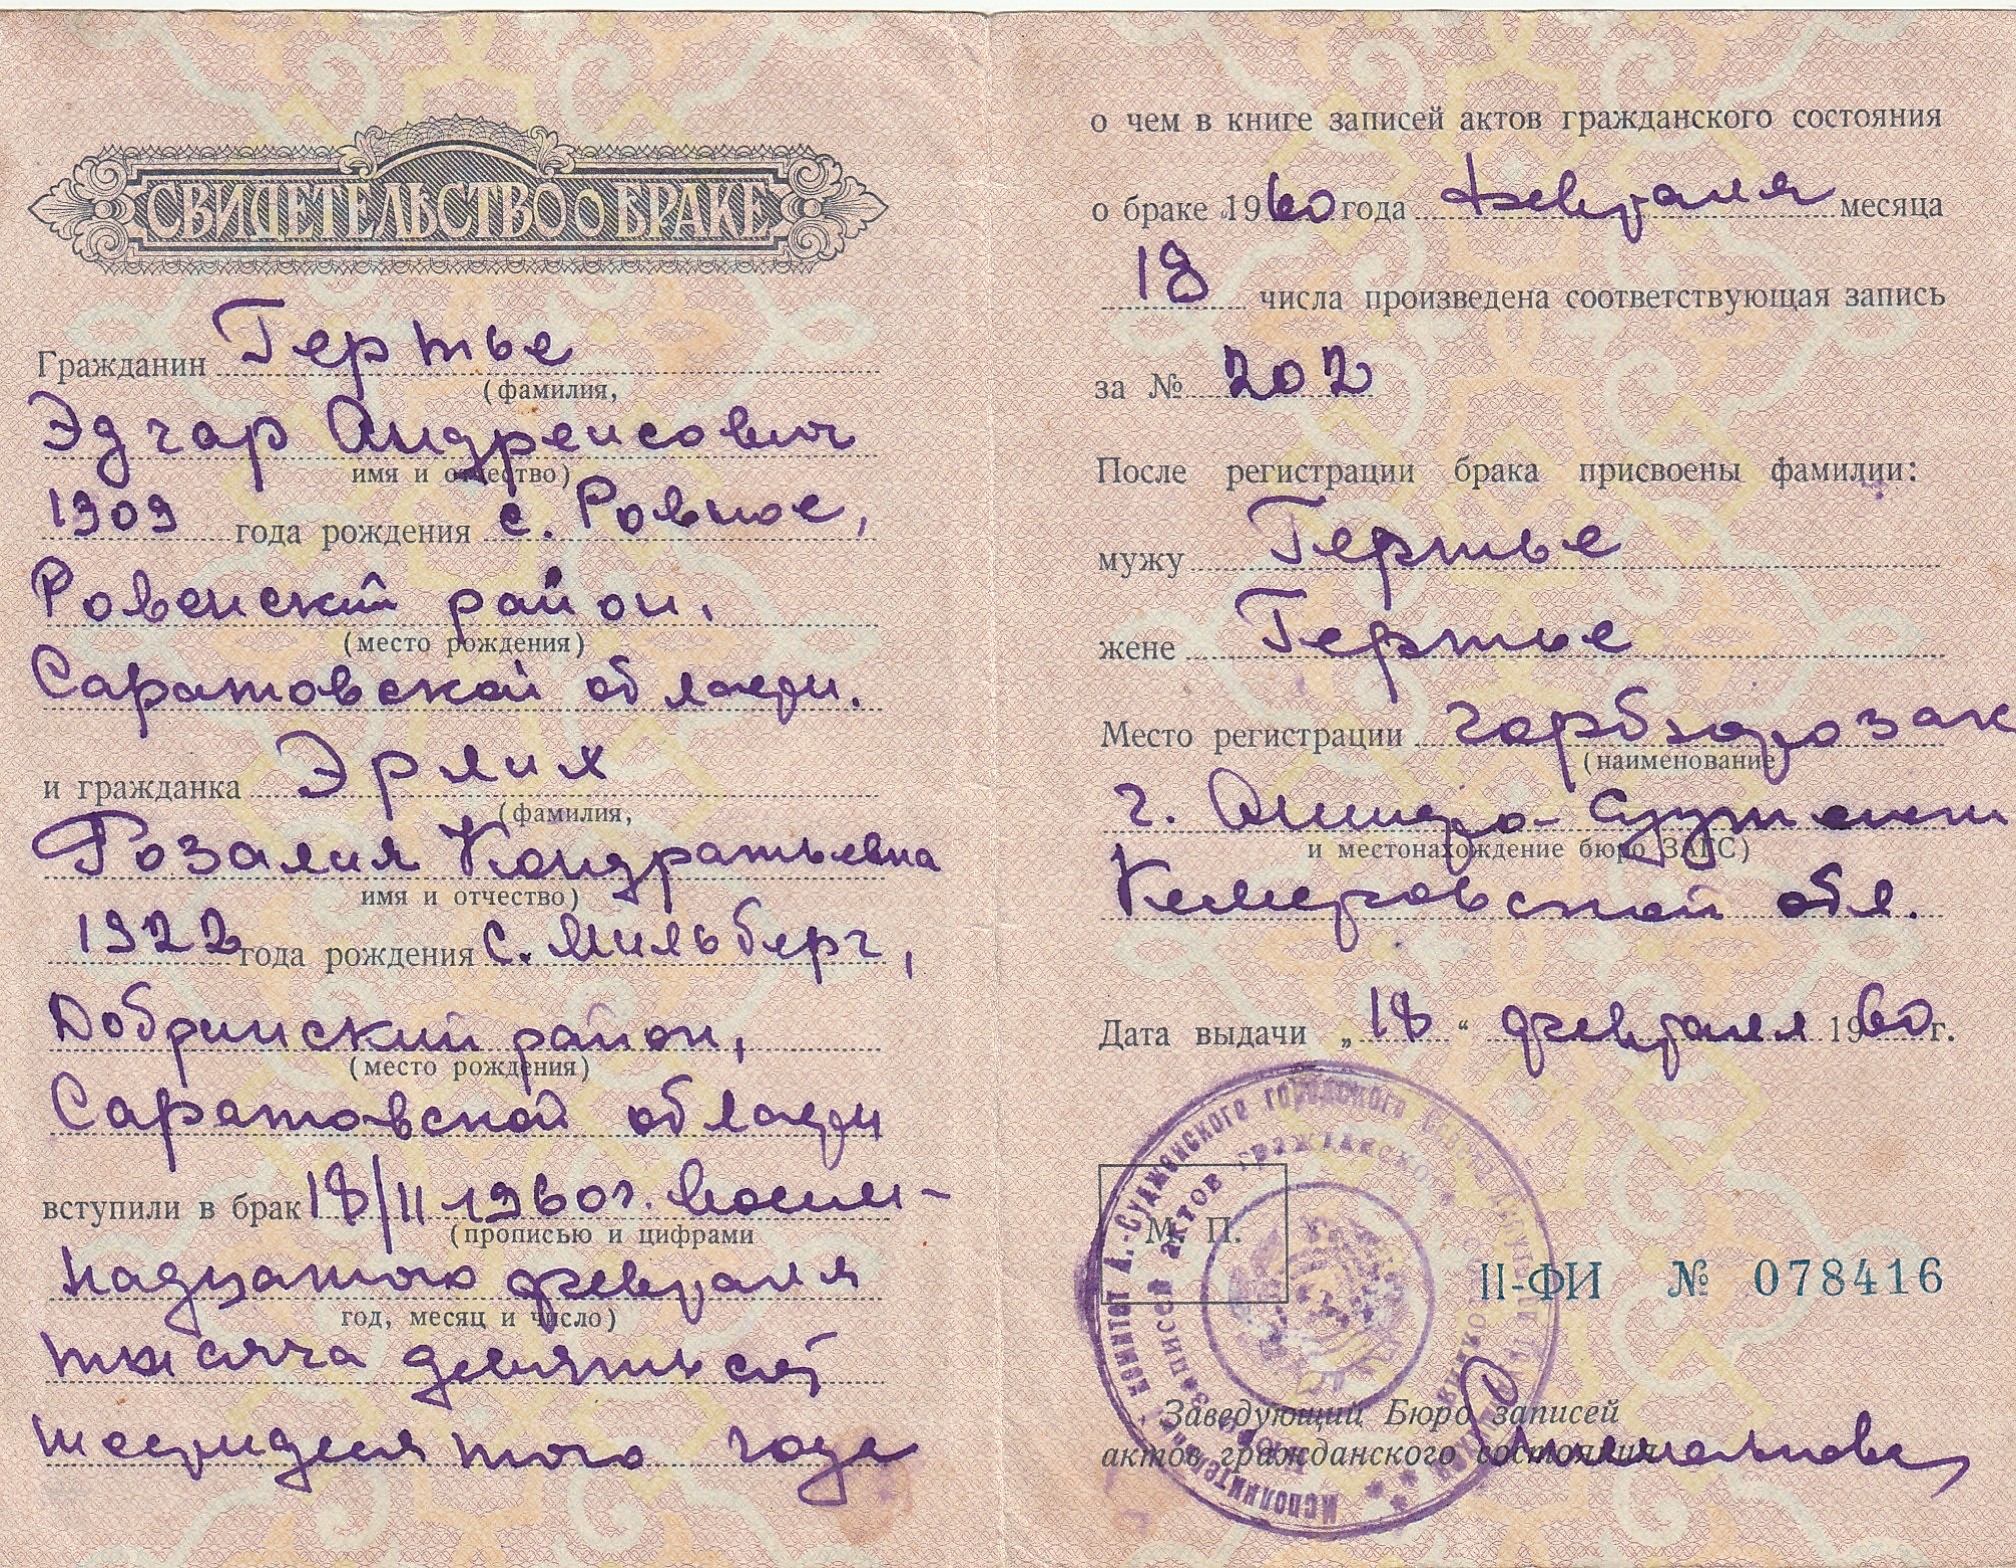 СВИДЕТЕЛЬСТВО О БРАКЕ
Гражданин Гертье
(фамилия,
Эдгар Андреисович
имя и отчество)
1909 года рождения с. Ровное,
Ровенский район,
(место рождения)
Саратовской области.
и гражданка Эрлих
(фамилия,
Розалия Кондратьевна
имя и отчество)
1922 года рождения с. Мильберг,
Добринский район,
(место рождения)
Саратовской области
вступили в брак 18/II 1960 г. восем-
(прописью и цифрами
надцатого февраля
год, месяц и число)
тысяча девятьсот
шестидесятого года
о чем в книге записей актов гражданского состояния
о браке 1960 года февраля месяца
18 числа произведена соответствующая запись
за № 202
После регистрации брака присвоены фамилии:
мужу Гертье
жене Гертье
Место регистрации горбюро загс
(наименование
г. Анжеро-Судженск
и местонахождение бюро ЗАГС)
Кемеровской обл.
Дата выдачи „18“ февраля 1960 г.
М. П.
II-ФИ № 078416
Заведующий Бюро записей
актов гражданского состояния